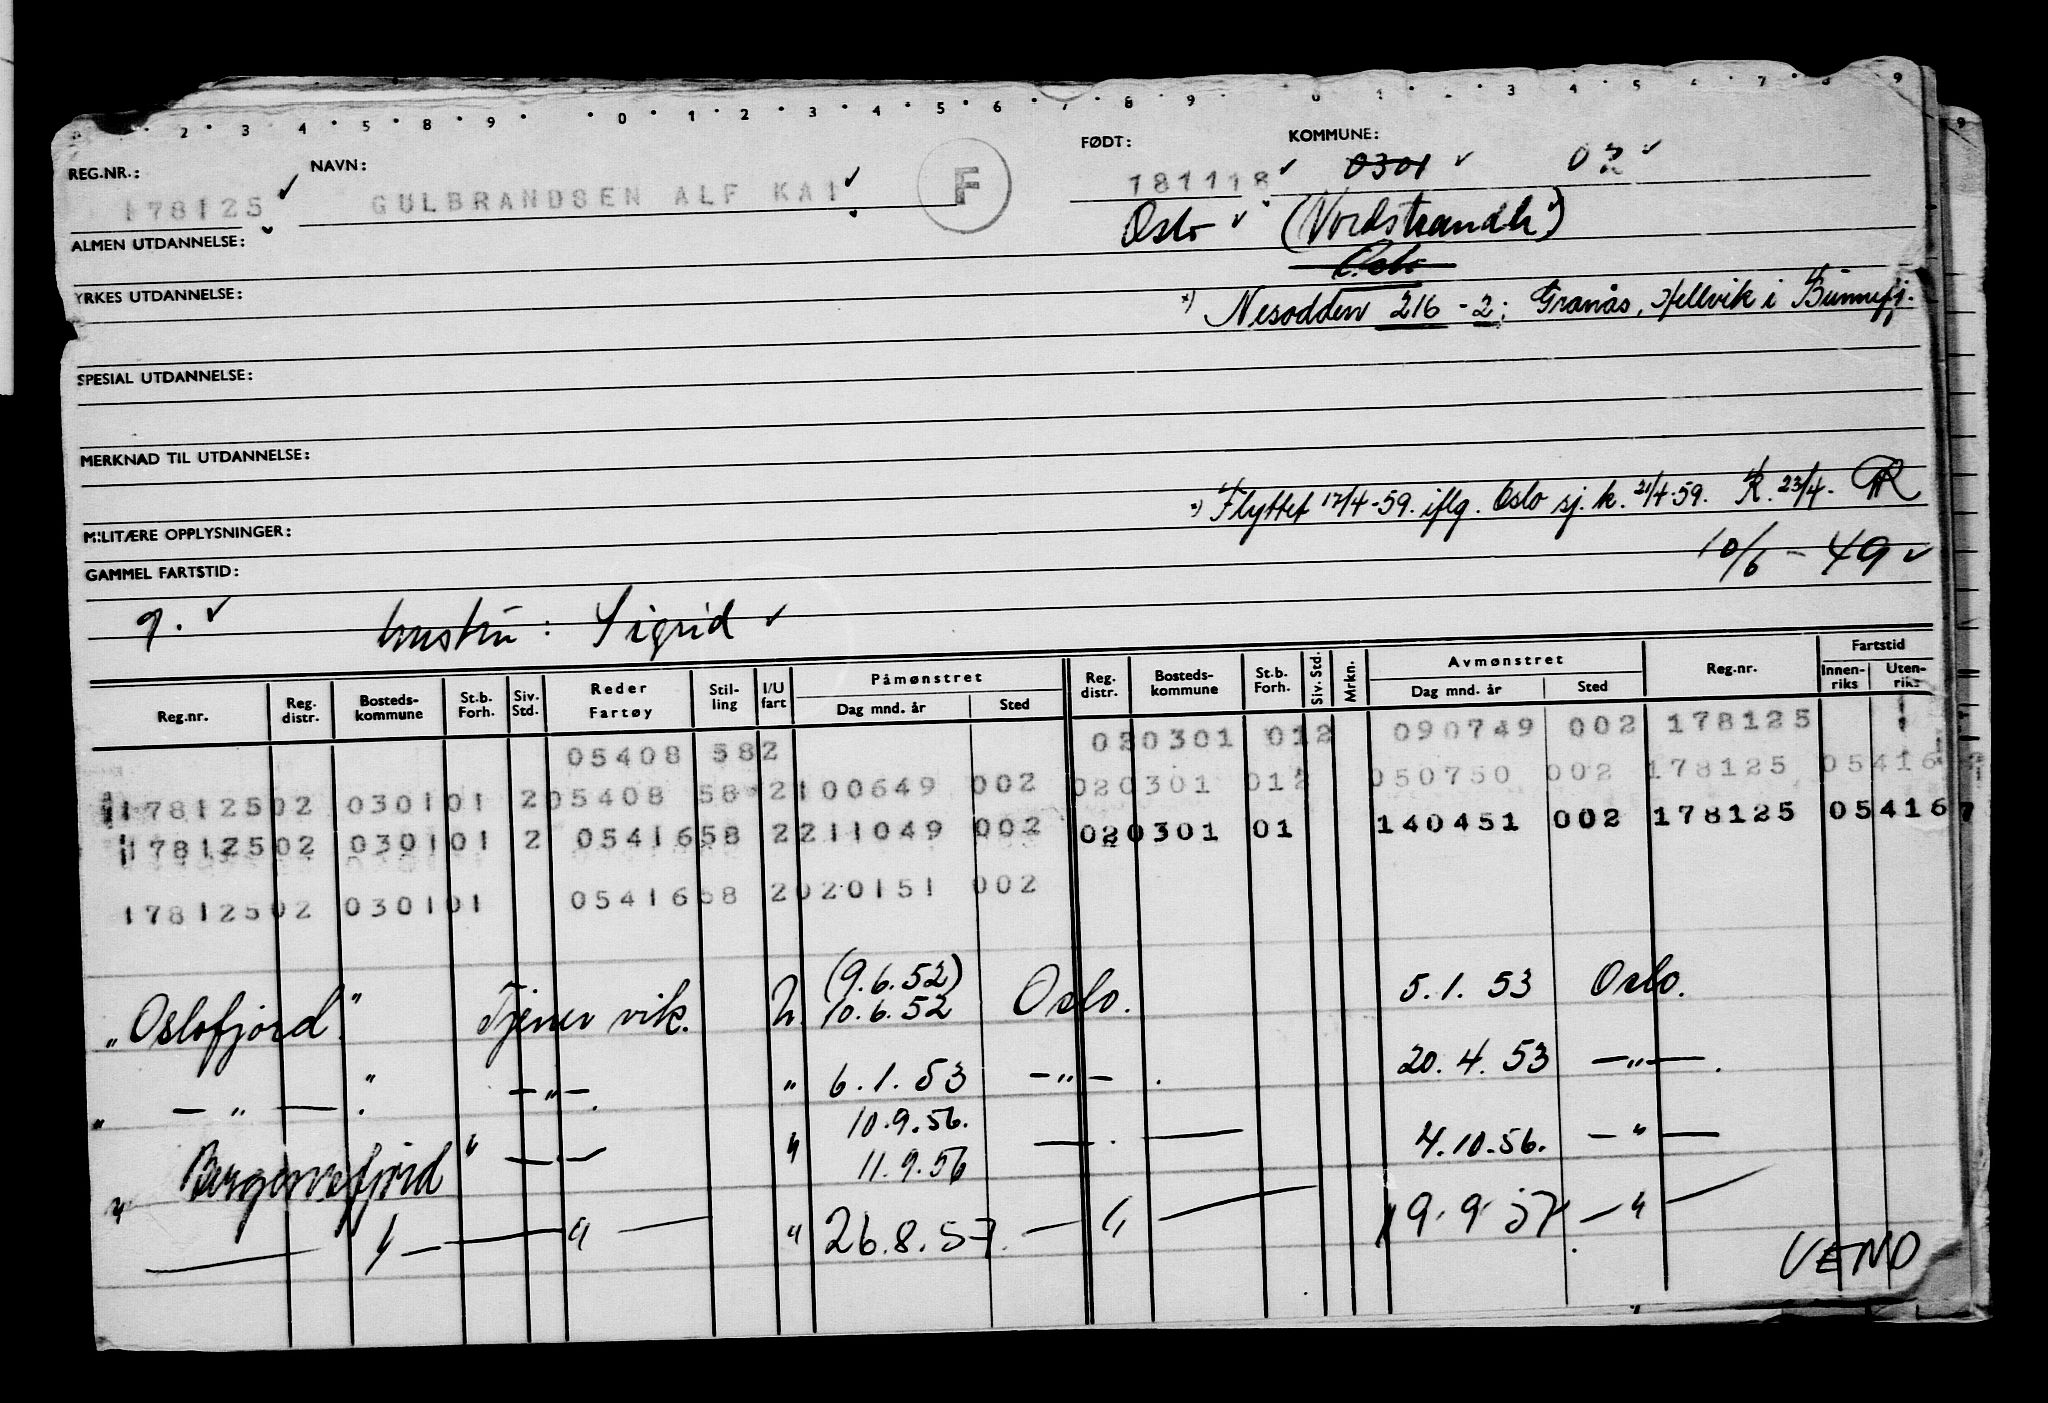 2 3 4 5 8 9 0 1 2 3 4 5 6 7 8 9 0 1 3 4 5 6 7 8 9
REG.NR.: NAVN: FØDT: KOMMUNE:
178125 ✓ GULBRANDSEN ALF KAI ✓ F 181118 ✓ 0301 ✓ 02 ✓
ALMEN UTDANNELSE: Oslo ✓ (Nordstrandh)
Oslo
YRKES UTDANNELSE: *) Nesodden 216-2; Granås, Hellvik i Bunnefj.
SPESIAL UTDANNELSE:
MERKNAD TIL UTDANNELSE:
*) Flyttet 17/4-59. iflg. Oslo sj. k. 21/4-59. K. 23/4.
MILITÆRE OPPLYSNINGER:
10/6-49 ✓
GAMMEL FARTSTID:
g. ✓ hustru: Sigrid ✓
Reg.nr. Reg. distr. Bosteds-kommune St.b. Forh. Siv. Std. Reder Fartøy Stil-ling I/U fart Påmønstret Dag mnd. år Sted Reg. distr. Bosteds-kommune St.b. Forh. Siv. Std. Mrkn. Avmønstret Dag mnd. år Sted Reg.nr. Fartstid Innen-riks Uten-riks
05408 582 020301 012 090749 002 178125
17812502 030101 205408 58 2100649 002 020301 012 050750 002 178125 05416
17812502 030101 2 0541658 2211049 002 020301 01 140451 002 178125 05416 7
17812502 030101 0541658 2020151 002
(9.6.52)
"Oslofjord" Tjener vik. U. 10.6.52 Oslo. 5.1.53 Oslo.
" — " — ." — " —. " 6.1.53 — " — . 20.4.53 — " — .
10.9.56.
" Bergensfjord" — " — " 11.9.56 — . — 4.10.56. — " —
— " — — " — " 26.8.57. — " — 19.9.57. — " —
VEND